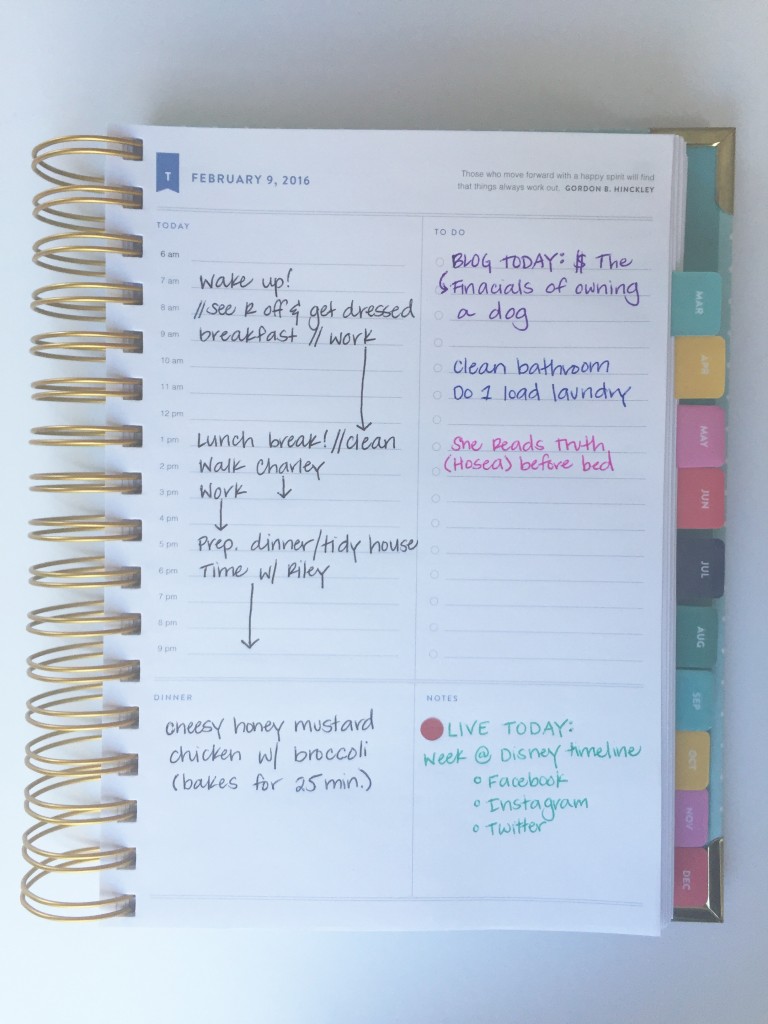 T FEBRUARY 9, 2016
Those who move forward with a happy spirit will find
that things always work out. GORDON B. HINCKLEY
TODAY
6 am
7 am Wake up!
8 am //see R off & get dressed
9 am breakfast // work
10 am
11 am
12 pm
1 pm Lunch break! //clean
2 pm Walk Charley
3 pm Work
4 pm
5 pm Prep. dinner/tidy house
6 pm Time w/ Riley
7 pm
8 pm
9 pm
TO DO
BLOG TODAY: $ The
Finacials of owning
a dog
Clean bathroom
Do 1 load laundry
She Reads Truth
(Hosea) before bed
DINNER
cheesy honey mustard
chicken w/ broccoli
(bakes for 25 min.)
NOTES
LIVE TODAY:
Week @ Disney timeline
Facebook
Instagram
Twitter
MAR
APR
MAY
JUN
JUL
AUG
SEP
OCT
NOV
DEC